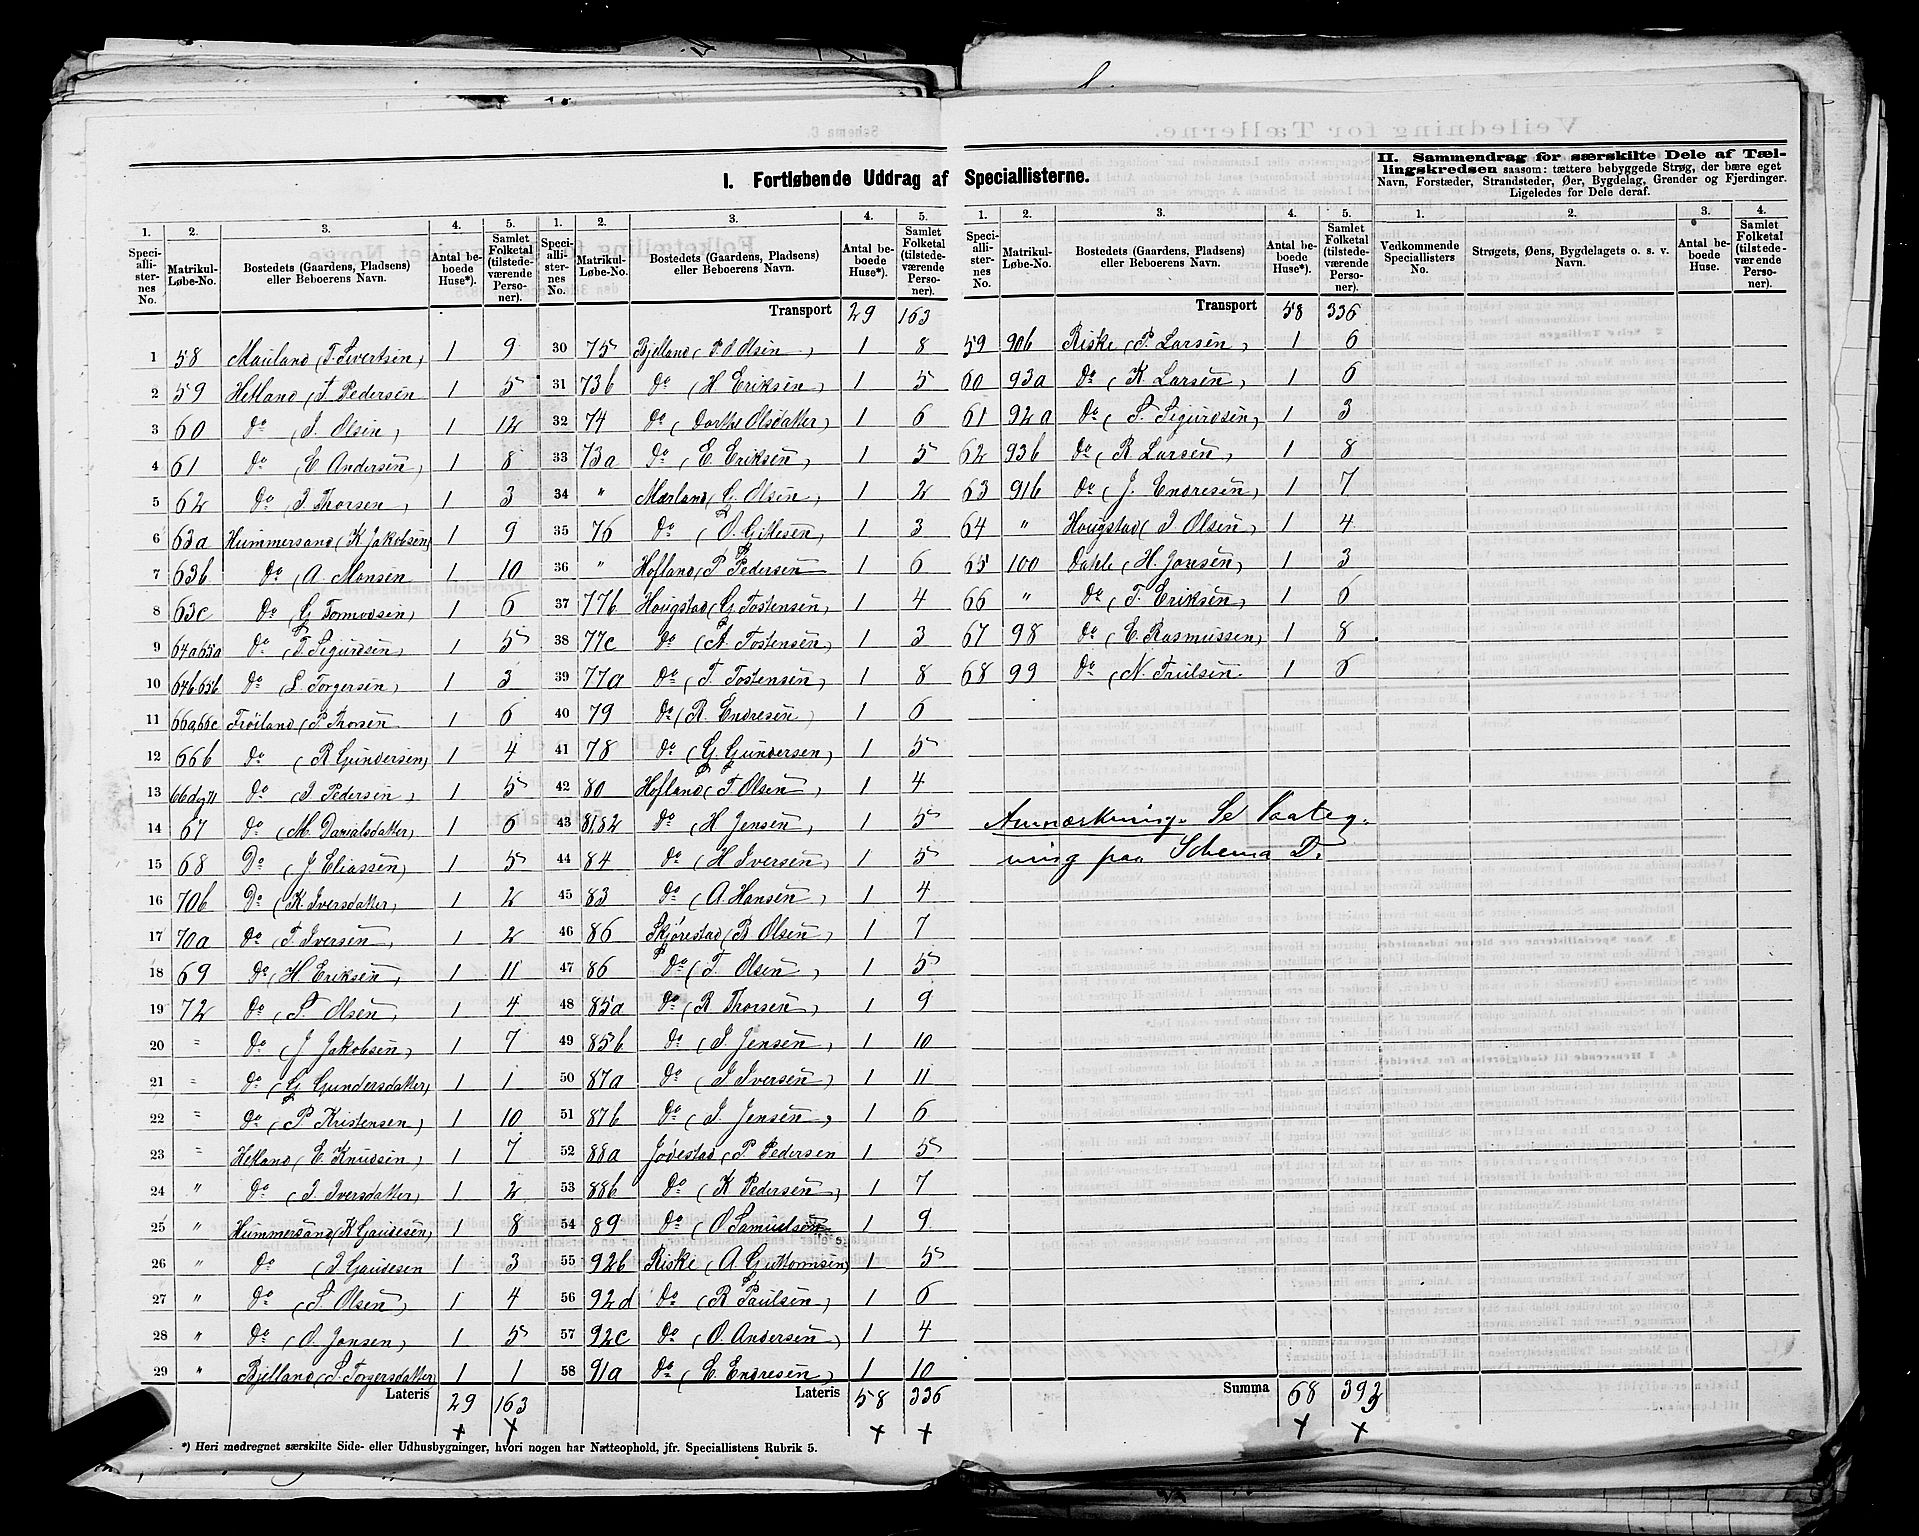 I. Fortløbende Uddrag af Speciallisterne.
1. 2. 3. 4. 5.
Speciallisternes No. Matrikul-Løbe-No. Bostedets (Gaardens, Pladsens) eller Beboerens Navn. Antal beboede Huse*). Samlet Folketal (tilstedeværende Personer).
1 58 Mauland (T. Sivertsen) 1 9
2 59 Hetland (T. Pedersen 1 5
3 60 Do (I. Olsen) 1 12
4 61 Do (E Andersen) 1 8
5 62 Do (I Thorsen) 1 3
6 63a Hummersand (K Jakobsen) 1 9
7 63b Do (A. Monsen 1 10
8 63c Do (G Tormodsen) 1 6
9 64a65a Do (T. Sigurdsen) 1 5
10 64b65b Do (L Torgersen) 1 3
11 66a,66c Frøiland (P. Thorsen 1 6
12 66b Do (R Gundersen) 1 4
13 66dog71 Do (I Pedersen) 1 5
14 67 Do (M. Danialsdatter) 1 6
15 68 Do (J Eliassen) 1 5
16 70b Do (K. Iversdatter) 1 2
17 70a Do (T. Iversen) 1 2
18 69 Do (H. Eriksen) 1 11
19 72 Do (T. Olsen) 1 4
20 " Do (J Jakobsen) 1 7
21 " Do (G Gundersdatter) 1 1
22 " Do (P Kristensen) 1 10
23 " Hetland (E. Knudsen) 1 7
24 " Do (I. Iversdatter) 1 2
25 " Hummersand (K Gaudesen) 1 8
26 " Do (I Gaudesen 1 3
27 " Do (S. Olsen) 1 4
28 " Do (O. Jonsen) 1 5
29 " Bjelland (S. Torgersdatter) 1 1
Lateris 29 163
*) Heri medregnet særskilte Side- eller Udhusbygninger, hvori nogen har Natteophold, jfr. Speciallistens Rubrik 5.
1. 2. 3. 4. 5.
Speciallisternes No. Matrikul-Løbe-No. Bostedets (Gaardens, Pladsens) eller Beboerens Navn. Antal beboede Huse*). Samlet Folketal (tilstedeværende Personer).
Transport 29 163
30 75 Bjelland (P. O Olsen) 1 8
31 73b Do (H Eriksen) 1 5
32 74 Do (Dorthe Olsdatter) 1 6
33 73a Do (E. Eriksen) 1 5
34 " Mærland (G. Olsen) 1 2
35 76 Do (O. Gittesen) 1 3
36 " Hofland (P Pedersen 1 6
37 77b Hougstad (G Tostensen) 1 4
38 77c Do (A Tostensen) 1 3
39 77a Do (T Tostensen) 1 8
40 79 Do (R. Endresen) 1 6
41 78 Do (G. Gundersen) 1 5
42 80 Hofland (T. Olsen) 1 4
43 81,82 Do (H Jensen) 1 5
44 84 Do (H Iversen) 1 5
45 83 Do (A. Hansen) 1 4
46 86 Skjørestad (B Olsen) 1 7
47 86 Do (T. Olsen) 1 5
48 85a Do (R Thorsen) 1 9
49 85b Do (I Jensen) 1 10
50 87a Do (I Iversen) 1 11
51 87b Do (I. Jensen) 1 6
52 88a Jødestad (P. Pedersen 1 5
53 88b Do (K Pedersen) 1 7
54 89 Do (O Samuelsen 1 9
55 92b Riske (A. Guttormsen) 1 5
56 92d Do (R Paulsen) 1 6
57 92c Do (O. Andersen) 1 4
58 91a Do (E. Endresen) 1 10
Lateris 58 336
1. 2. 3. 4. 5.
Speciallisternes No. Matrikul-Løbe-No. Bostedets (Gaardens, Pladsens) eller Beboerens Navn. Antal beboede Huse*). Samlet Folketal (tilstedeværende Personer).
Transport 58 336
59 90b Riske (P. Larsen) 1 6
60 93a Do (K. Larsen) 1 6
61 92a Do (S. Sigurdsen) 1 3
62 93b Do (R Larsen) 1 8
63 91b Do (J. Endresen) 1 7
64 " Hougstad (I Olsen) 1 4
65 100 Dahle (H. Jonsen) 1 3
66 " Do (T. Eriksen) 1 6
67 98 Do (E. Rasmussen) 1 8
68 99 Do (N. Trulsen 1 6
Anmærkning. Se Paateg-
ning paa Schema D.
Summa 68 393
II. Sammendrag for særskilte Dele af Tæl-
lingskredsen saasom: tættere bebyggede Strøg, der bære eget
Navn, Forstæder, Strandsteder, Øer, Bygdelag, Grender og Fjerdinger.
Ligeledes for Dele deraf.
1. 2. 3. 4.
Vedkommende Speciallisters No. Strøgets, Øens, Bygdelagets o. s. v. Navn. Antal beboede Huse. Samlet Folketal (tilstedeværende Personer).